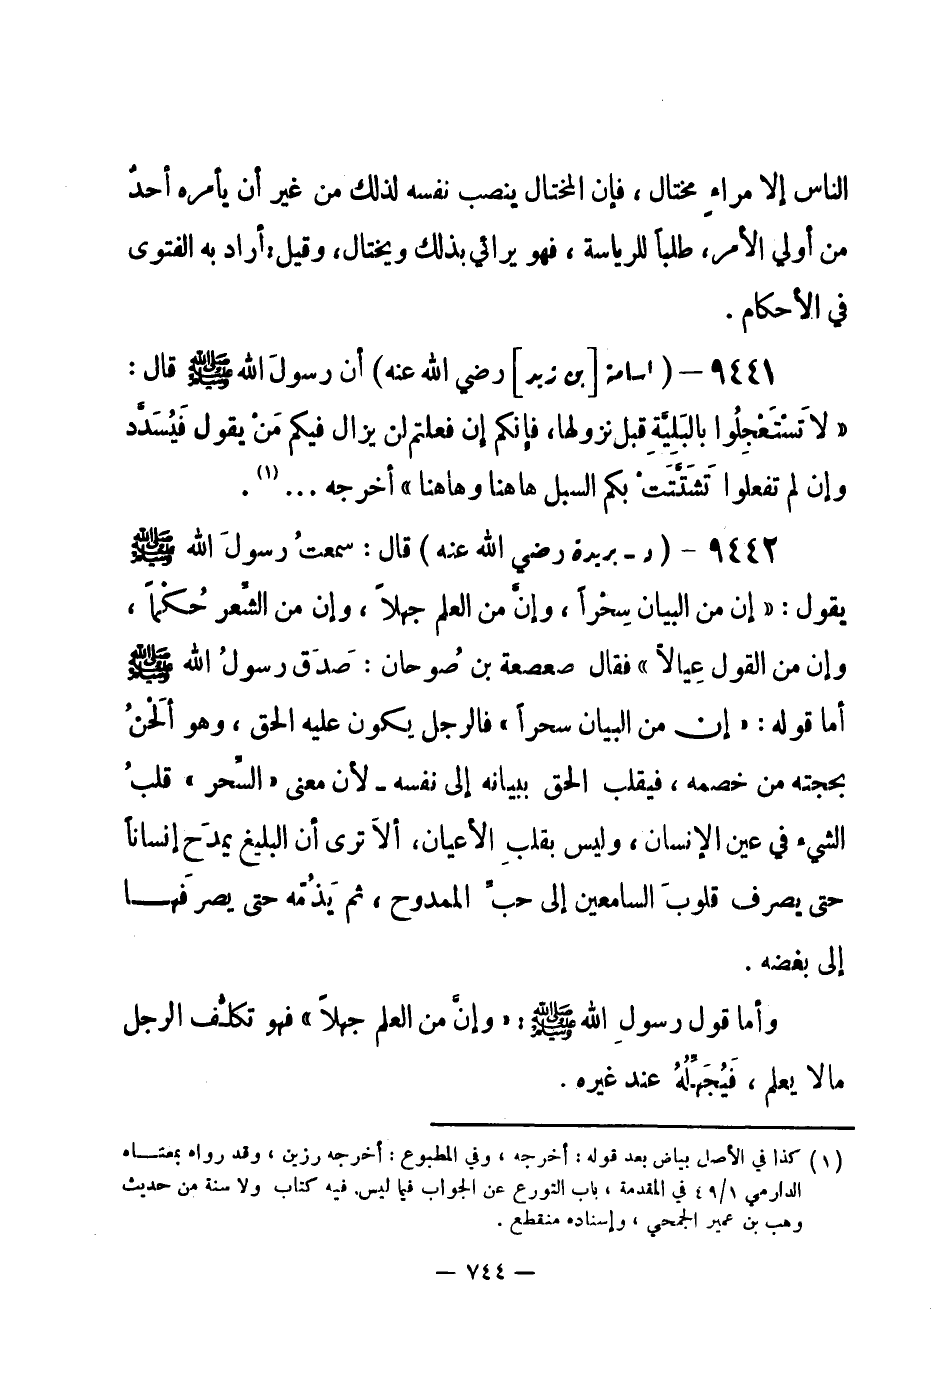 الناس إلا مراءٍ مختال ، فإن المختال ينصب نفسه لذلك من غير أن يأمره أحدٌ
من أولي الأمر، طلباً للرياسة ، فهو يرائي بذلك ويختال، وقيل: أراد به الفتوى
في الأحكام .
٩٤٤١ – ( أسامة [بن زيد] رضي الله عنه) أن رسولَ الله ﷺ قال :
« لا تَسْتَعْجِلُوا بالبَلِيَّةِ قبل نزولها، فإنكم إن فعلتم لن يزال فيكم مَنْ يقول فَيُسَدَّد
وإن لم تفعلوا تَشَتَّتَتْ بكم السبل هاهنا وهاهنا » أخرجه ... (١) .
٩٤٤٢ – ( د ـ بريدة رضي الله عنه ) قال : سمعتُ رسولَ الله ﷺ
يقول : « إن من البيان سِحْراً ، وإنَّ من العلم جهلاً ، وإن من الشِّعر حُكْماً ،
وإن من القول عِيالاً » فقال صعصعة بن صُوحان : صَدَق رسولُ الله ﷺ
أما قوله : « إن من البيان سحراً » فالرجل يكون عليه الحق ، وهو ألْحَنُ
بحجته من خصمه ، فيقلب الحق ببيانه إلى نفسه ـ لأن معنى « السِّحر » قلبُ
الشيء في عين الإنسان ، وليس بقلبِ الأعيان، ألاَ ترى أن البليغ يمدَح إنساناً
حتى يصرف قلوبَ السامعين إلى حبِّ الممدوح ، ثم يَذُمّه حتى يصرفَها
إلى بغضه .
وأما قول رسولِ الله ﷺ : « وإنَّ من العلم جهلاً » فهو تكلُّف الرجل
مالا يعلم ، فَيُجَهِّلُهُ عند غيره .
(١) كذا في الأصل بياض بعد قوله : أخرجه ، وفي المطبوع : أخرجه رزين ، وقد رواه بمعناه
الدارمي ٤٩/١ في المقدمة ، باب التورع عن الجواب فيما ليس. فيه كتاب ولا سنة من حديث
وهب بن عمير الجمحي ، وإسناده منقطع .
– ٧٤٤ –